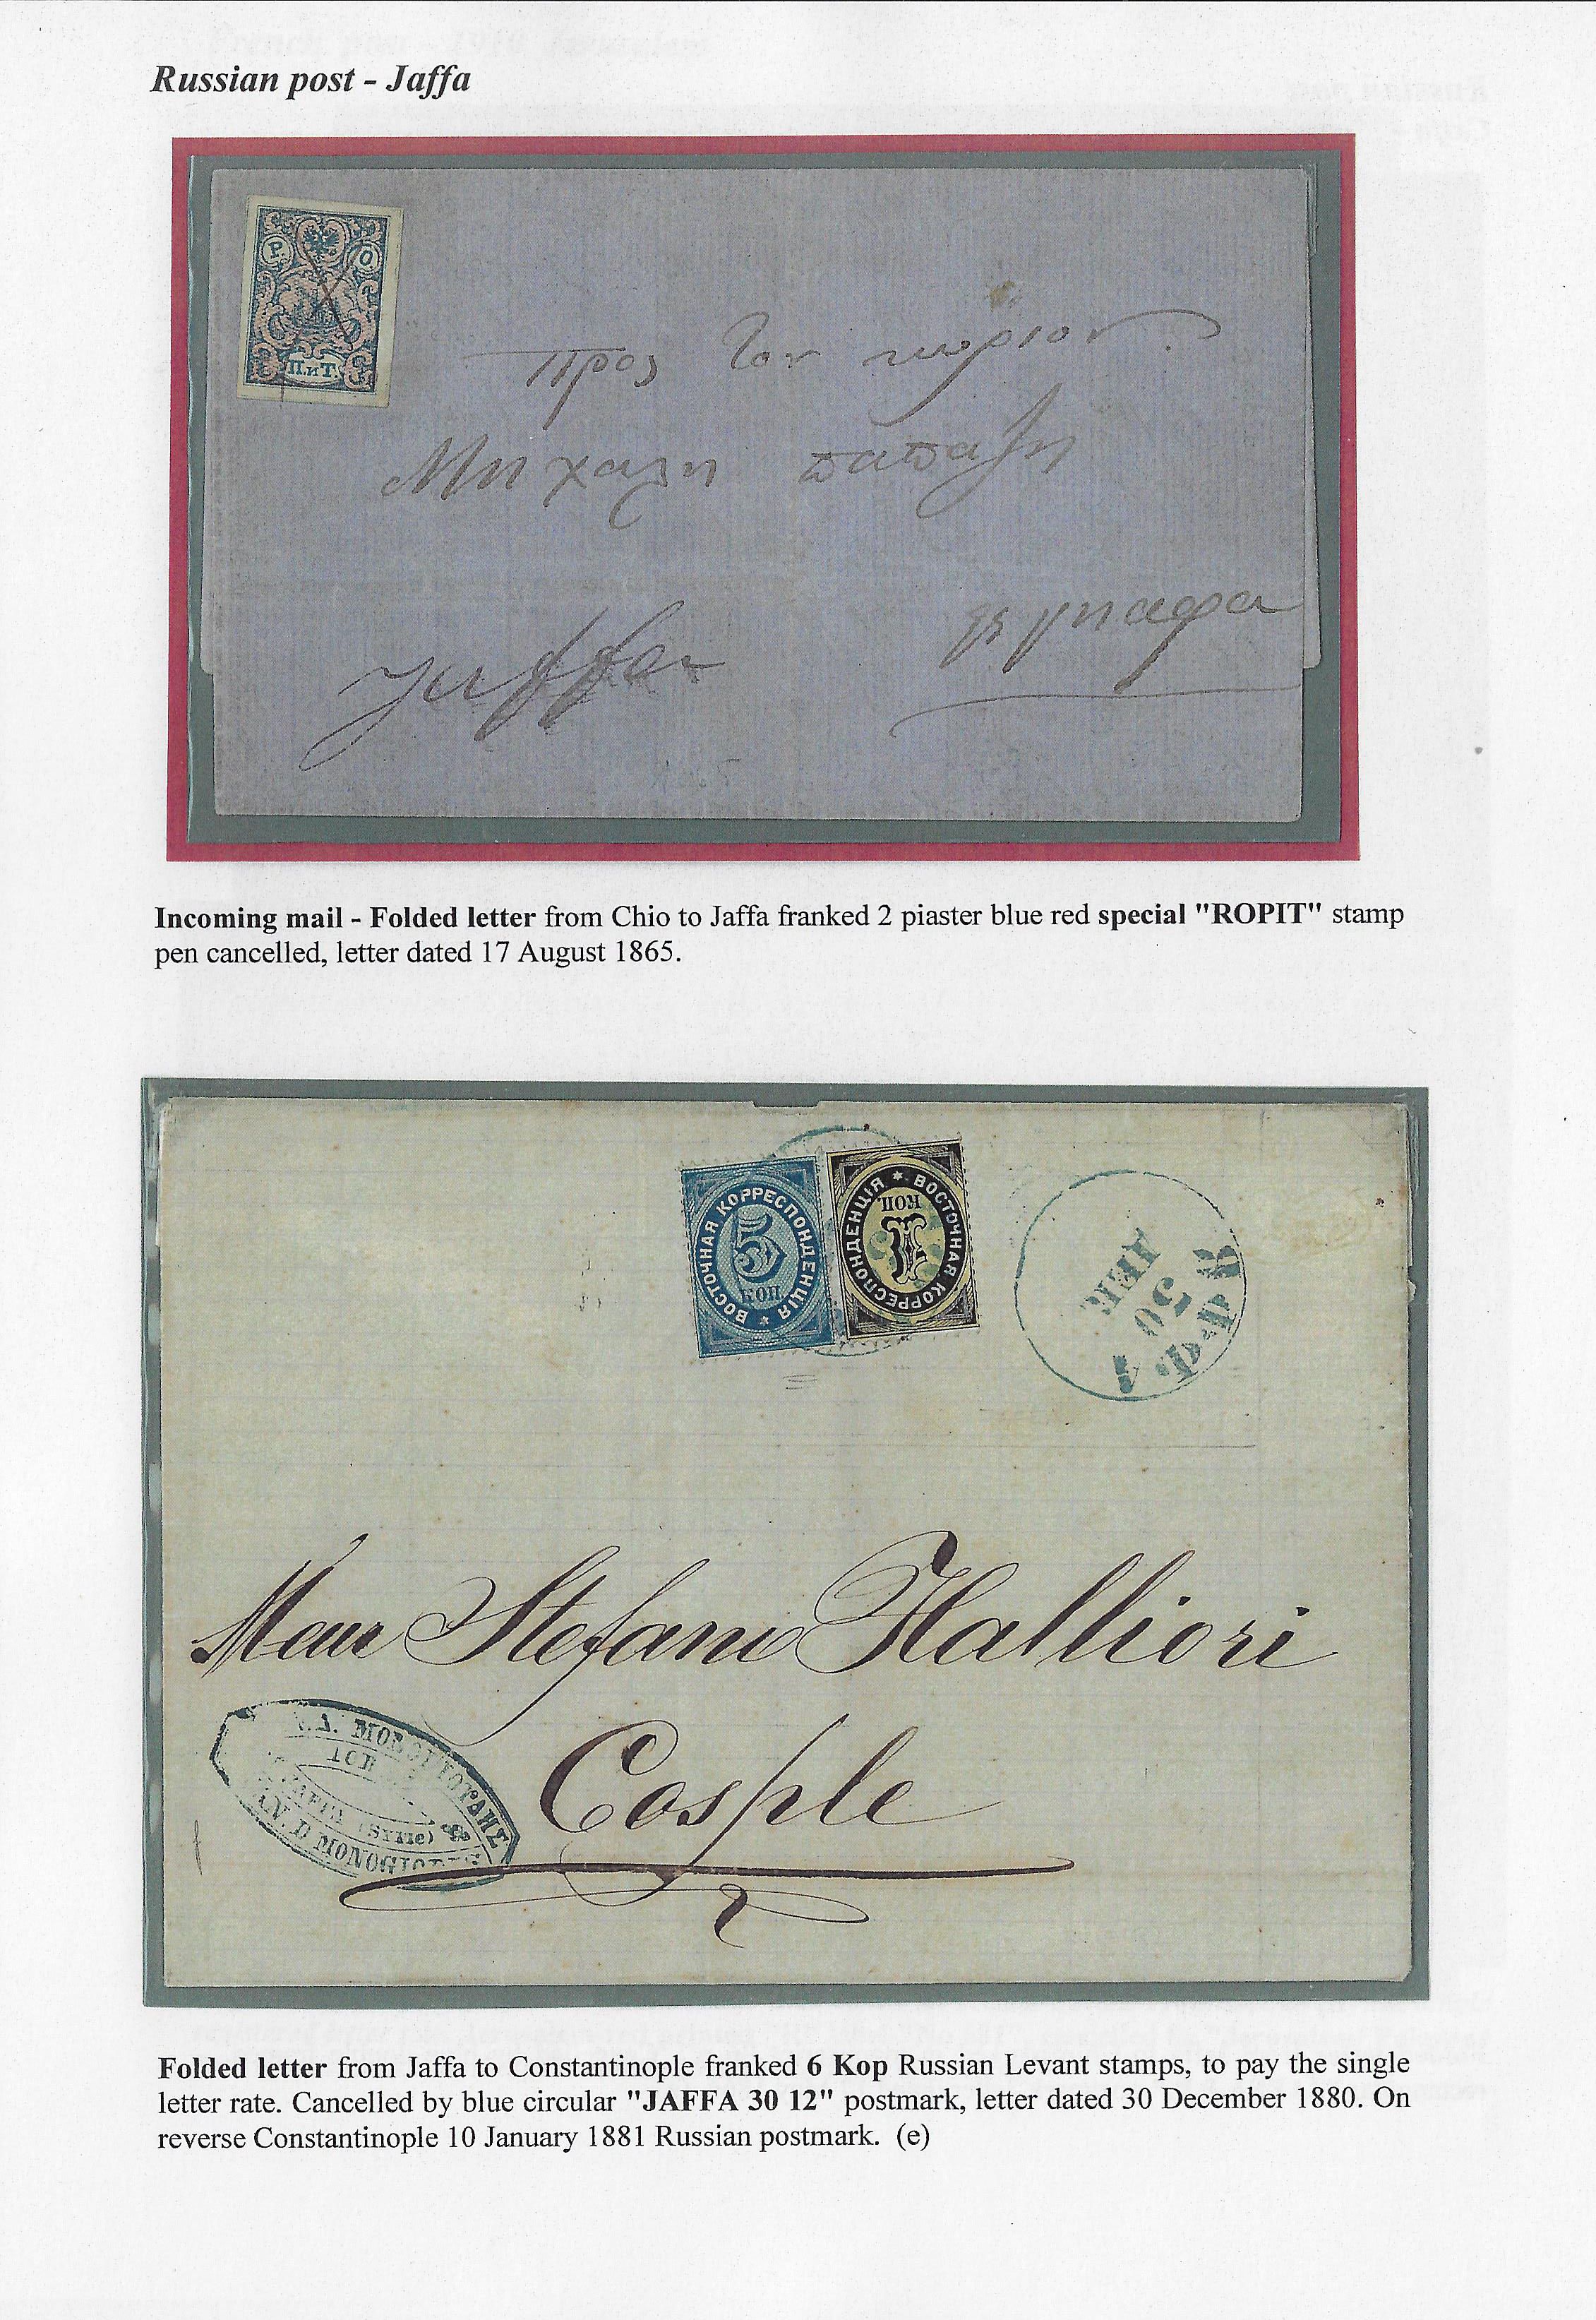 Russian post - Jaffa
Р О
П.и Т.
Προς τον κύριον
Μηχαλη παπαζη
Jaffa
Incoming mail - Folded letter from Chio to Jaffa franked 2 piaster blue red special "ROPIT" stamp
pen cancelled, letter dated 17 August 1865.
ВОСТОЧНАЯ КОРРЕСПОНДЕНЦІЯ
5
КОП
ВОСТОЧНАЯ КОРРЕСПОНДЕНЦІЯ
1
КОП
ЯФФА
30
ДЕК
Stefano
Cosple
(Syrie)
D MONOGIO
Folded letter from Jaffa to Constantinople franked 6 Kop Russian Levant stamps, to pay the single
letter rate. Cancelled by blue circular "JAFFA 30 12" postmark, letter dated 30 December 1880. On
reverse Constantinople 10 January 1881 Russian postmark. (e)